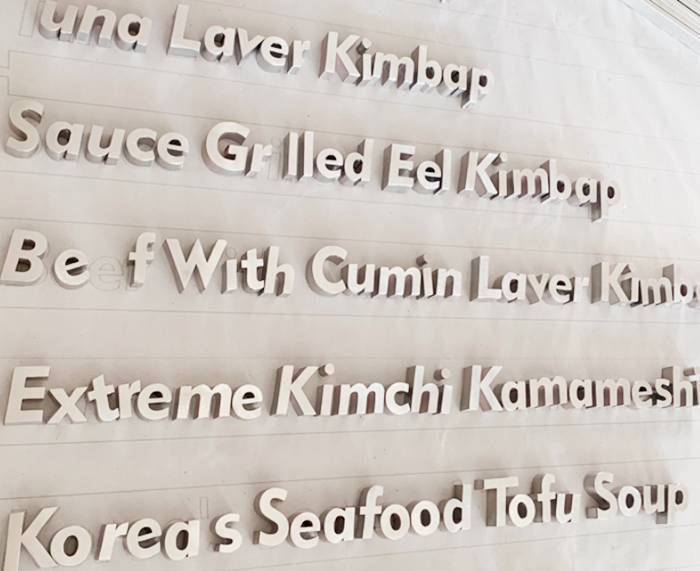 una Laver Kimbap
Sauce Gr lled Eel Kimbap
Be f With Cumin Laver Kimb
Extreme Kimchi Kamamesh
Korea s Seafood Tofu Soup